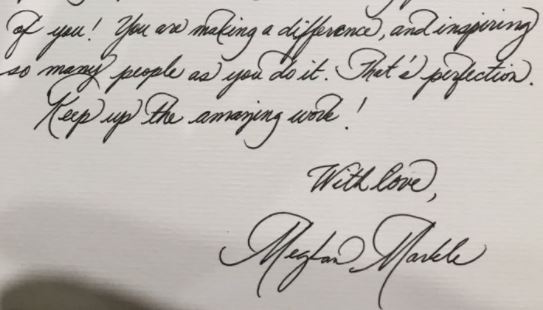 of you! You are making a difference, and inspiring
so many people as you do it. That's perfection.
Keep up the amazing work!
With love,
Meghan Markle